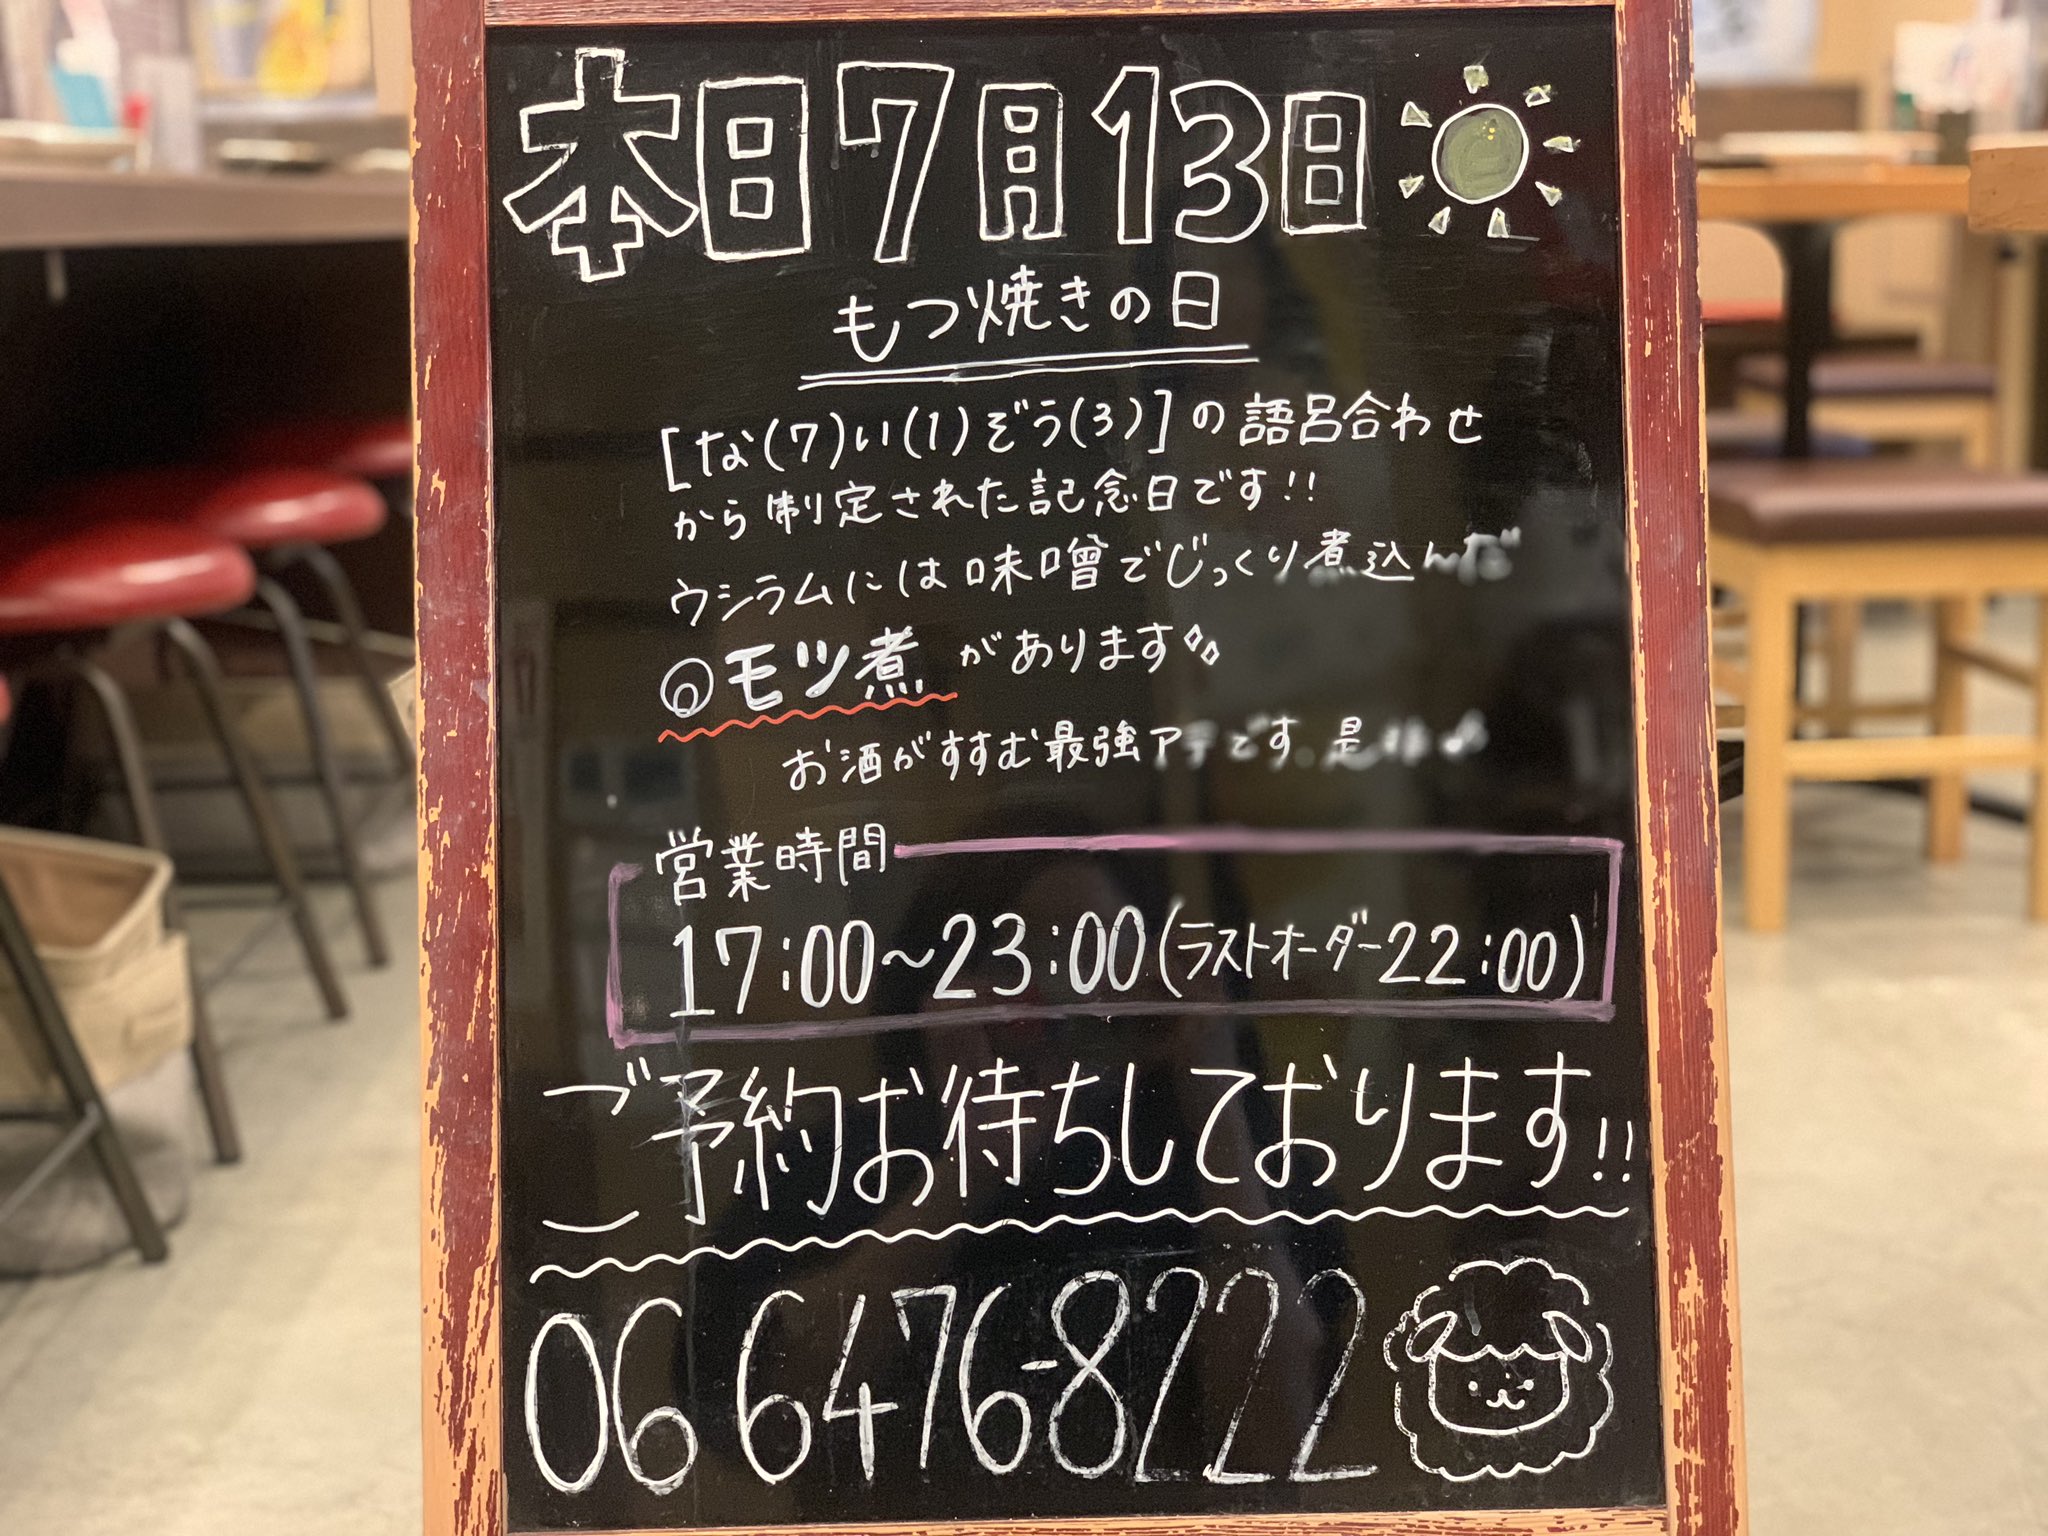 本日7月13日
もつ焼きの日
[な(7)い(1)ぞう(3)]の語呂合わせ
から制定された記念日です!!
ウシラムには味噌でじっくり煮込んだ
◎モツ煮があります
お酒がすすむ最強アテです。是
営業時間
17:00~23:00(ラストオーダー22:00)
ご予約お待ちしております!!
06 6476-8222